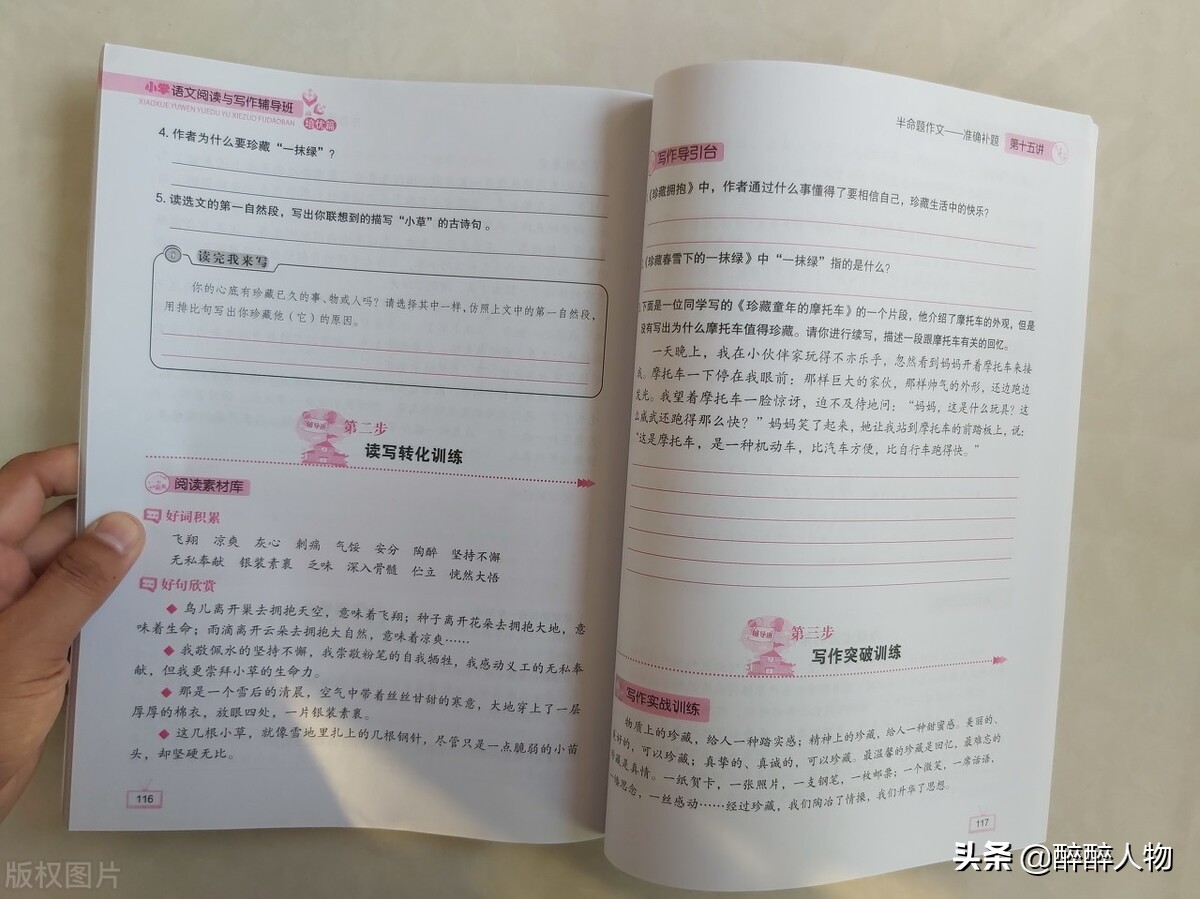 小学语文阅读与写作辅导班
XIAOXUE YUWEN YUEDU YU XIEZUO FUDAOBAN
培优篇
4. 作者为什么要珍藏“一抹绿”?
5. 读选文的第一自然段,写出你联想到的描写“小草”的古诗句。
读完我来写
你的心底有珍藏已久的事、物或人吗?请选择其中一样,仿照上文中的第一自然段,
用排比句写出你珍藏他(它)的原因。
第二步
读写转化训练
阅读素材库
好词积累
飞翔 凉爽 灰心 刺痛 气馁 安分 陶醉 坚持不懈
无私奉献 银装素裹 乏味 深入骨髓 伫立 恍然大悟
好句欣赏
◆ 鸟儿离开巢去拥抱天空,意味着飞翔;种子离开花朵去拥抱大地,意
味着生命;雨滴离开云朵去拥抱大自然,意味着凉爽……
◆ 我敬佩水的坚持不懈,我崇敬粉笔的自我牺牲,我感动义工的无私奉
献,但我更崇拜小草的生命力。
◆ 那是一个雪后的清晨,空气中带着丝丝甘甜的寒意,大地穿上了一层
厚厚的棉衣,放眼四处,一片银装素裹。
◆ 这几根小草,就像雪地里扎上的几根钢针,尽管只是一点脆弱的小苗
头,却坚硬无比。
116
半命题作文——准确补题 第十五讲
写作导引台
《珍藏拥抱》中,作者通过什么事懂得了要相信自己,珍藏生活中的快乐?
《珍藏春雪下的一抹绿》中“一抹绿”指的是什么?
下面是一位同学写的《珍藏童年的摩托车》的一个片段,他介绍了摩托车的外观,但是
没有写出为什么摩托车值得珍藏。请你进行续写,描述一段跟摩托车有关的回忆。
一天晚上,我在小伙伴家玩得不亦乐乎,忽然看到妈妈开着摩托车来接
我。摩托车一下停在我眼前:那样巨大的家伙,那样帅气的外形,还边跑边
发光。我望着摩托车一脸惊讶,迫不及待地问:“妈妈,这是什么玩具?这
么威武还跑得那么快?”妈妈笑了起来,她让我站到摩托车的前踏板上,说:
“这是摩托车,是一种机动车,比汽车方便,比自行车跑得快。”
第三步
写作突破训练
写作实战训练
物质上的珍藏,给人一种踏实感;精神上的珍藏,给人一种甜蜜感。美丽的、
美好的,可以珍藏;真挚的、真诚的,可以珍藏。最温馨的珍藏是回忆,最难忘的
珍藏是真情。一纸贺卡,一张照片,一支钢笔,一枚邮票;一个微笑,一席话语,
思念,一丝感动……经过珍藏,我们陶冶了情操,我们升华了思想。
117
版权图片
头条 @醉醉人物